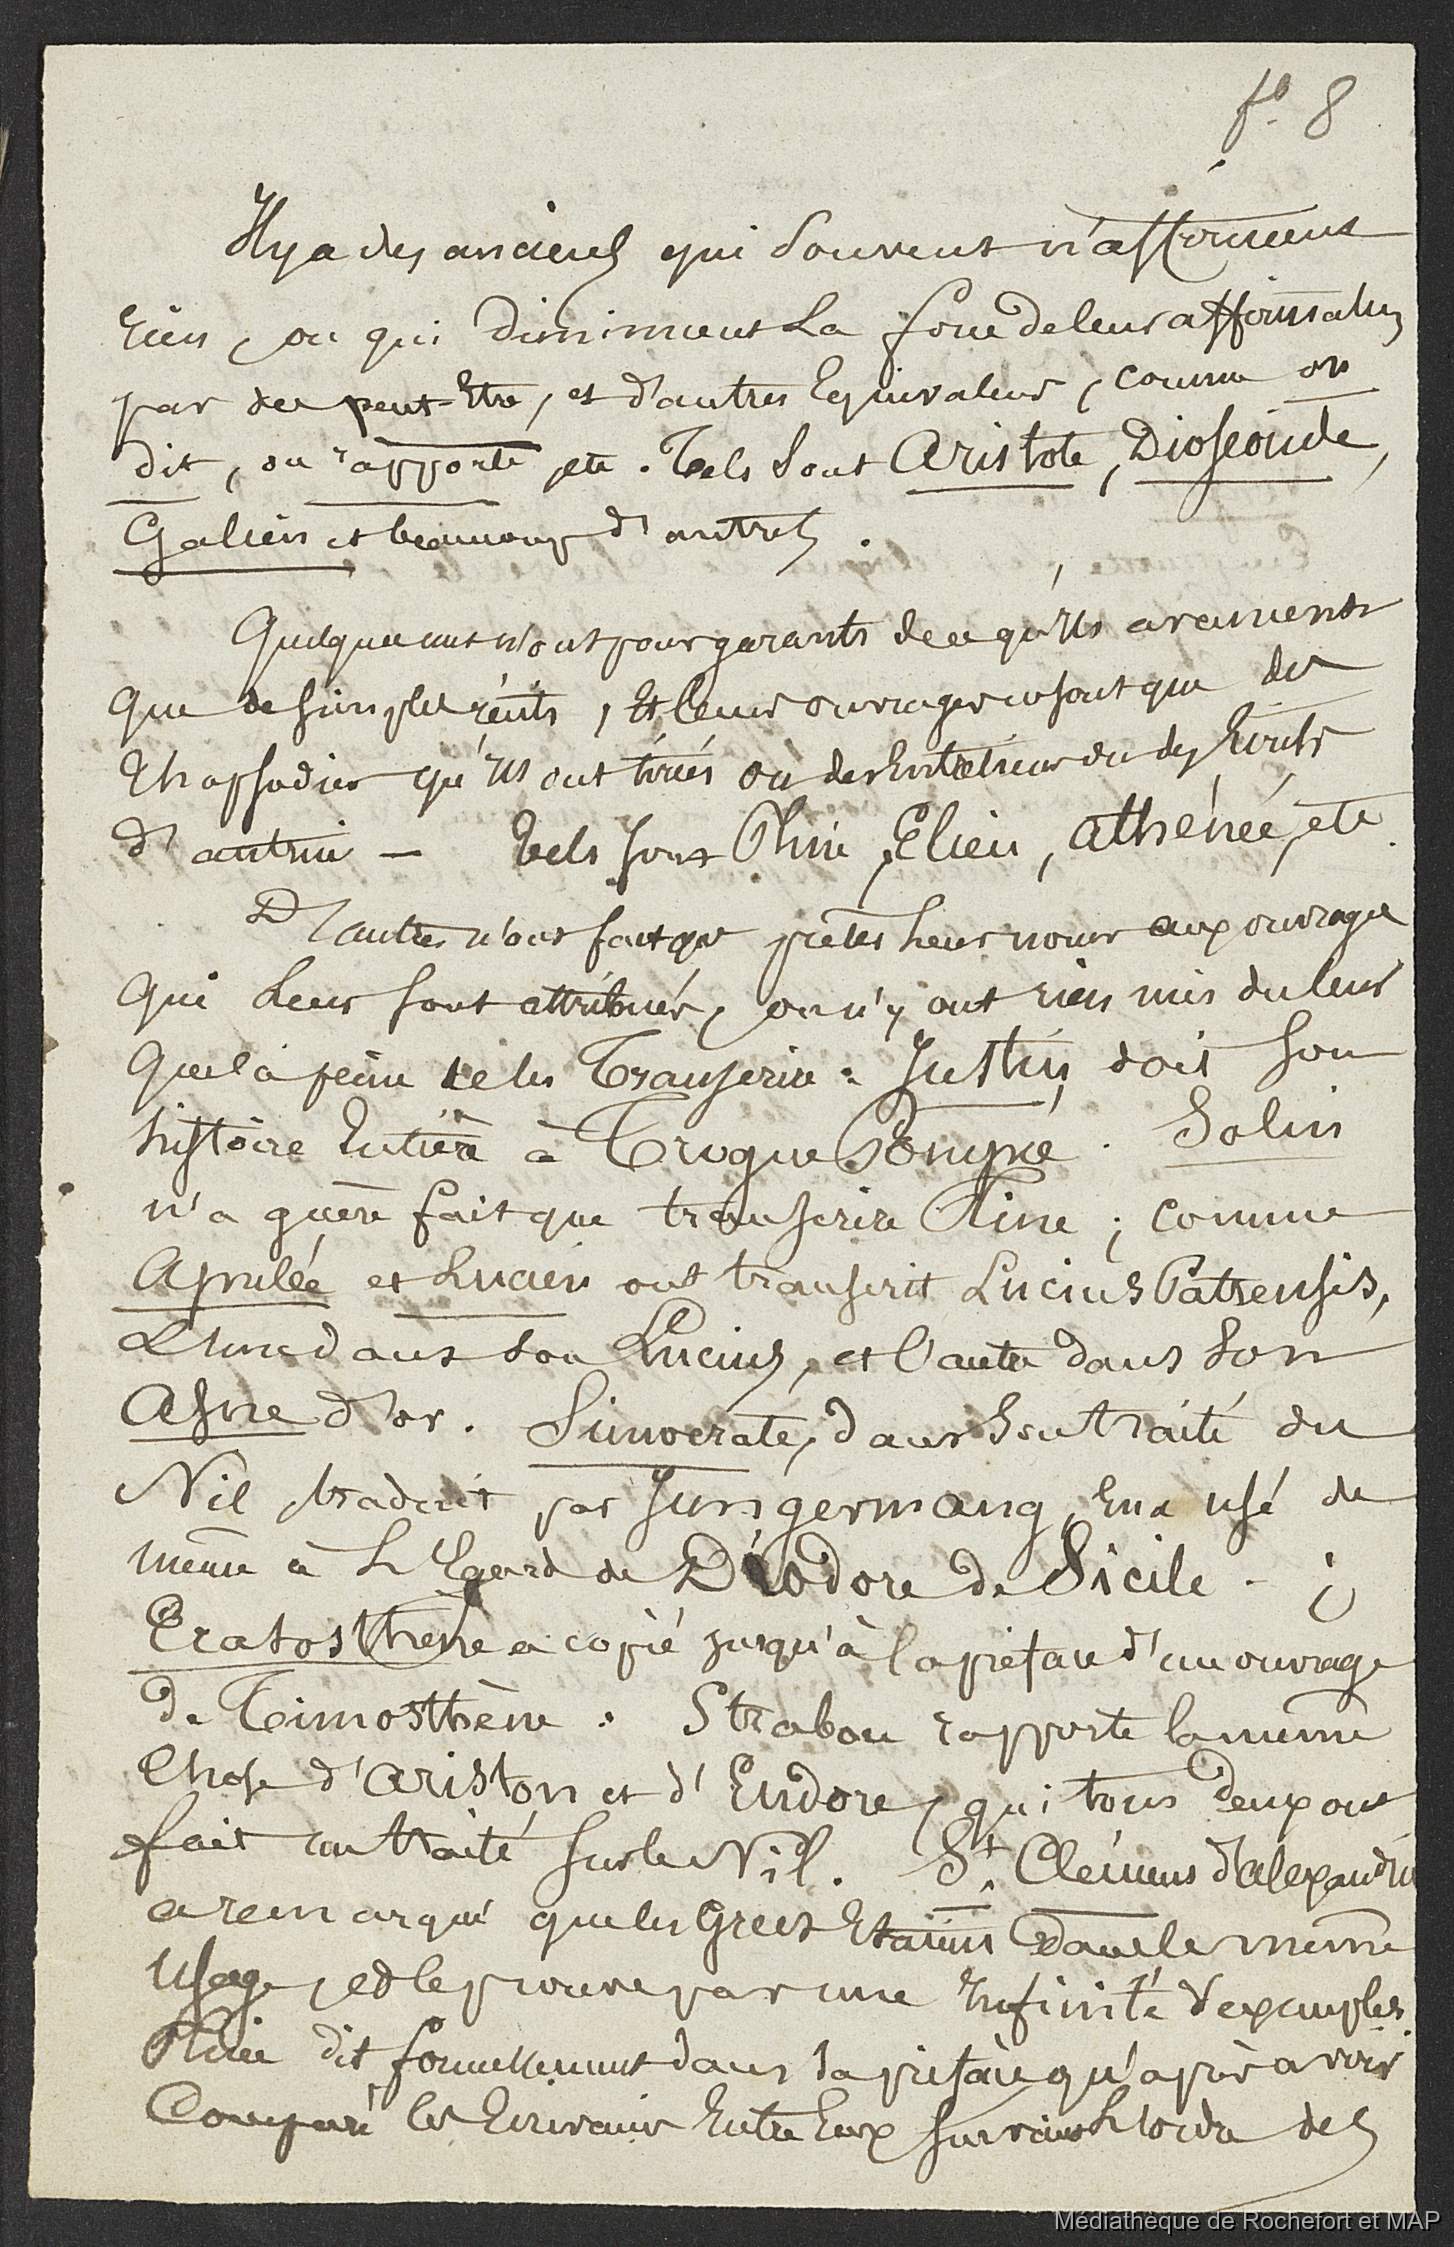 fo. 8
Il y a des anciens qui souvent n'affirment
rien, ou qui diminuent la force de leur affirmation
par des peut-être, et d'autres équivalens, comme on
dit, on rapporte, etc. Tels sont Aristote, Dioscoride,
Galien et beaucoup d'autres.
Quelques uns n'ont pour garants de ce qu'ils avancent
que de simples récits, et leurs ouvrages ne sont que des
rhapsodies qu'ils ont tirées ou des entretiens ou des Ecrits
d'autrui — tels sont Pline, Elien, athénée, etc.
D'autres n'ont fait que prêter leurs noms aux ouvrages
qui leur sont attribués, ou n'y ont rien mis du leur
que la peine de les Transcrire : Justin doit son
histoire Entière à Trogue Pompée. Solin
n'a guère fait que transcrire Pline ; comme
Apulée et Lucien ont transcrit Lucius Patrensis,
L'une dans son Lucius, et l'autre dans son
Asne d'or. Simocrate, dans son traité du
Nil traduit par Jungermang, en a usé de
même à L'Egard de Diodore de Sicile. -
Eratosthène a copié jusqu'à la préface d'un ouvrage
de Timosthène : Strabon rapporte la même
chose d'Ariston et d'Eudore, qui tous deux ont
fait un traité sur le Nil. St. Clémens d'alexandrie
a remarqué que les Grecs Etaient dans le même
usage, et le prouve par une infinité d'exemples.
Pline dit formellement dans sa préface qu'après avoir
Comparé les Ecrivains Entre Eux des
Médiathèque de Rochefort et MAP